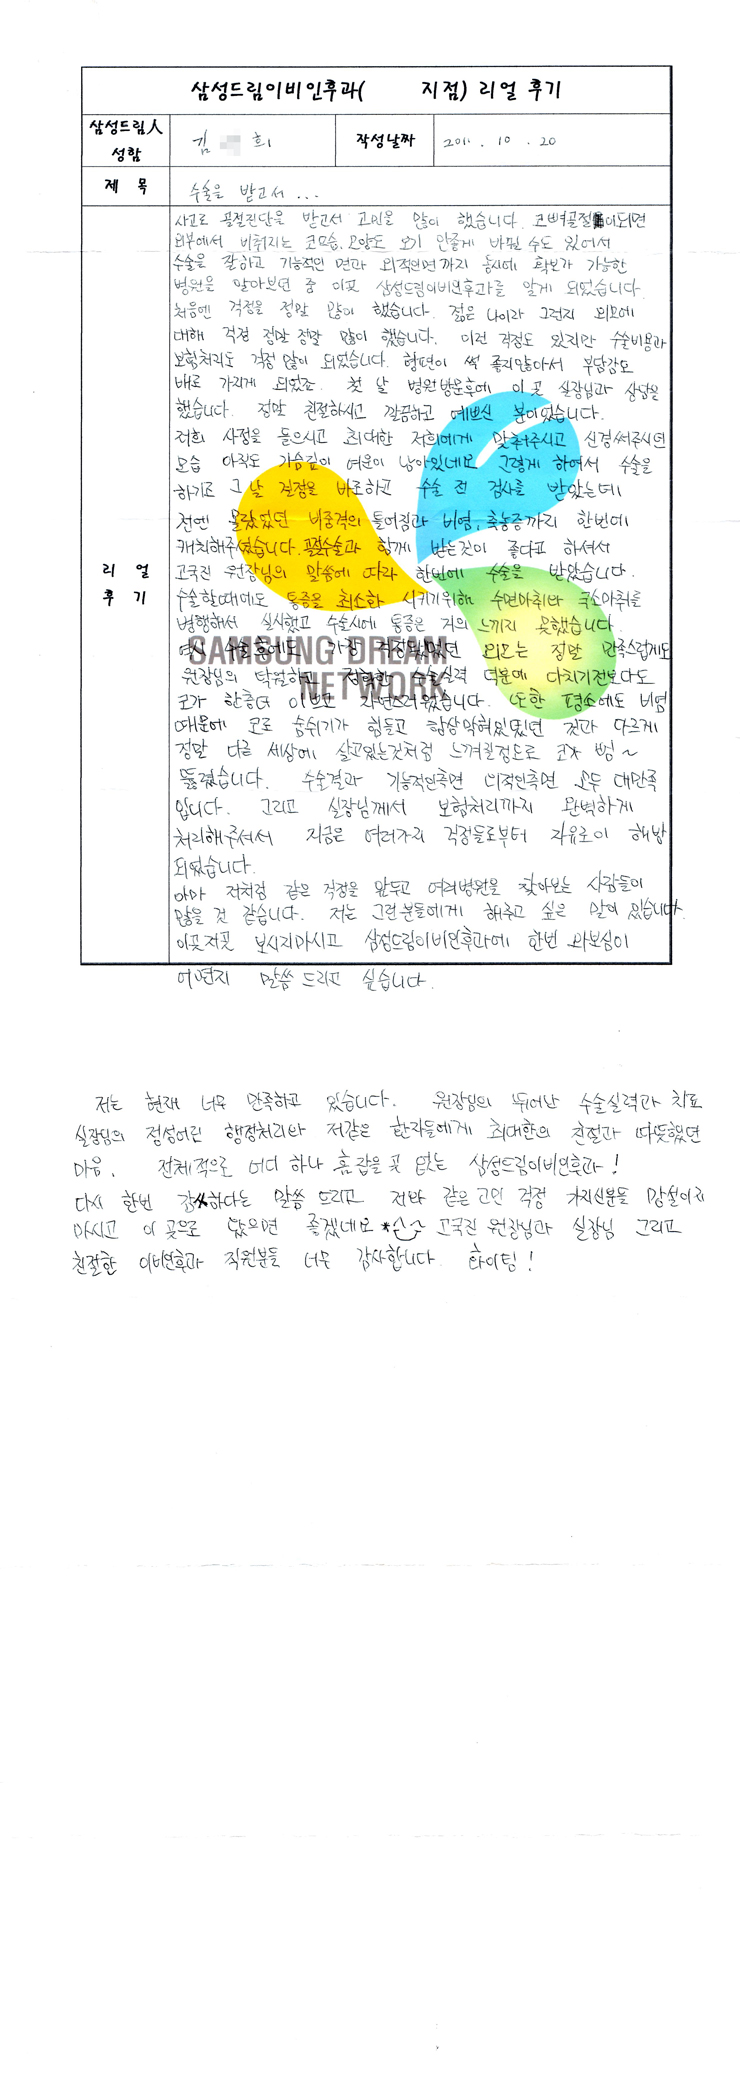 삼성드림이비인후과(      지점) 리얼 후기
삼성드림人 성함
김    희
작성날짜
2011 . 10 . 20
제 목
수술을 받고서 ...
리 얼 후 기
사고로 골절진단을 받고서 고민을 많이 했습니다. 코뼈골절이되면
외부에서 비춰지는 코모습, 모양도 보기 안좋게 바뀔 수도 있어서
수술을 잘하고 기능적인 면과 외적인면까지 동시에 확보가 가능한
병원을 알아보던 중 이곳 삼성드림이비인후과를 알게 되었습니다.
처음엔 걱정을 정말 많이 했습니다. 젊은 나이라 그런지 외모에
대해 걱정 정말 정말 많이 했습니다. 이런 걱정도 있지만 수술비용과
보험처리도 걱정 많이 되었습니다. 형편이 썩 좋지않아서 부담감도
배로 가지게 되었죠. 첫 날 병원방문후에 이곳 실장님과 상담을
했습니다. 정말 친절하시고 깔끔하고 예쁘신 분이었습니다.
저희 사정을 들으시고 최대한 저희에게 맞춰주시고 신경써주시던
모습 아직도 가슴깊이 여운이 남아있네요. 그렇게 하여서 수술을
하기로 그 날 결정을 바로하고 수술 전 검사를 받았는데
전엔 몰랐었던 비중격의 틀어짐과 비염, 축농증까지 한번에
캐치해주셨습니다. 골절수술과 함께 받는것이 좋다고 하셔서
고국진 원장님의 말씀에 따라 한번에 수술을 받았습니다.
수술할때에도 통증을 최소한 시키기위해 수면마취와 국소마취를
병행해서 실시했고 수술시에 통증은 거의 느끼지 못했습니다.
역시 수술후에도 가장 걱정됐었던 외모는 정말 만족스럽게도
SAMSUNG DREAM
원장님의 탁월하고 정확한 수술실력 덕분에 다치기전보다도
NETWORK
코가 한층더 이쁘고 자연스러웠습니다. 또한 평소에도 비염
때문에 코로 숨쉬기가 힘들고 항상막혀있었던 것과 다르게
정말 다른 세상에 살고있는것처럼 느껴질정도로 코가 뻥~
뚫렸습니다. 수술결과 기능적인측면 미적인측면 모두 대만족
입니다. 그리고 실장님께서 보험처리까지 완벽하게
처리해주셔서 지금은 여러가지 걱정들로부터 자유로이 해방
되었습니다.
아마 저처럼 같은 걱정을 앞두고 여러병원을 찾아보는 사람들이
많을 것 같습니다. 저는 그런분들에게 해주고 싶은 말이 있습니다.
이곳저곳 보시지마시고 삼성드림이비인후과에 한번 와보심이
어떤지 말씀 드리고 싶습니다.
저는 현재 너무 만족하고 있습니다. 원장님의 뛰어난 수술실력과 치료
실장님의 정성어린 행정처리와 저같은 환자들에게 최대한의 친절과 따뜻했던
마음, 전체적으로 어디 하나 흠잡을 곳 없는 삼성드림이비인후과!
다시 한번 감사하다는 말씀 드리고 저와 같은 고민 걱정 가지신분들 망설이지
마시고 이 곳으로 왔으면 좋겠네요 *^^ 고국진 원장님과 실장님 그리고
친절한 이비인후과 직원분들 너무 감사합니다. 화이팅!